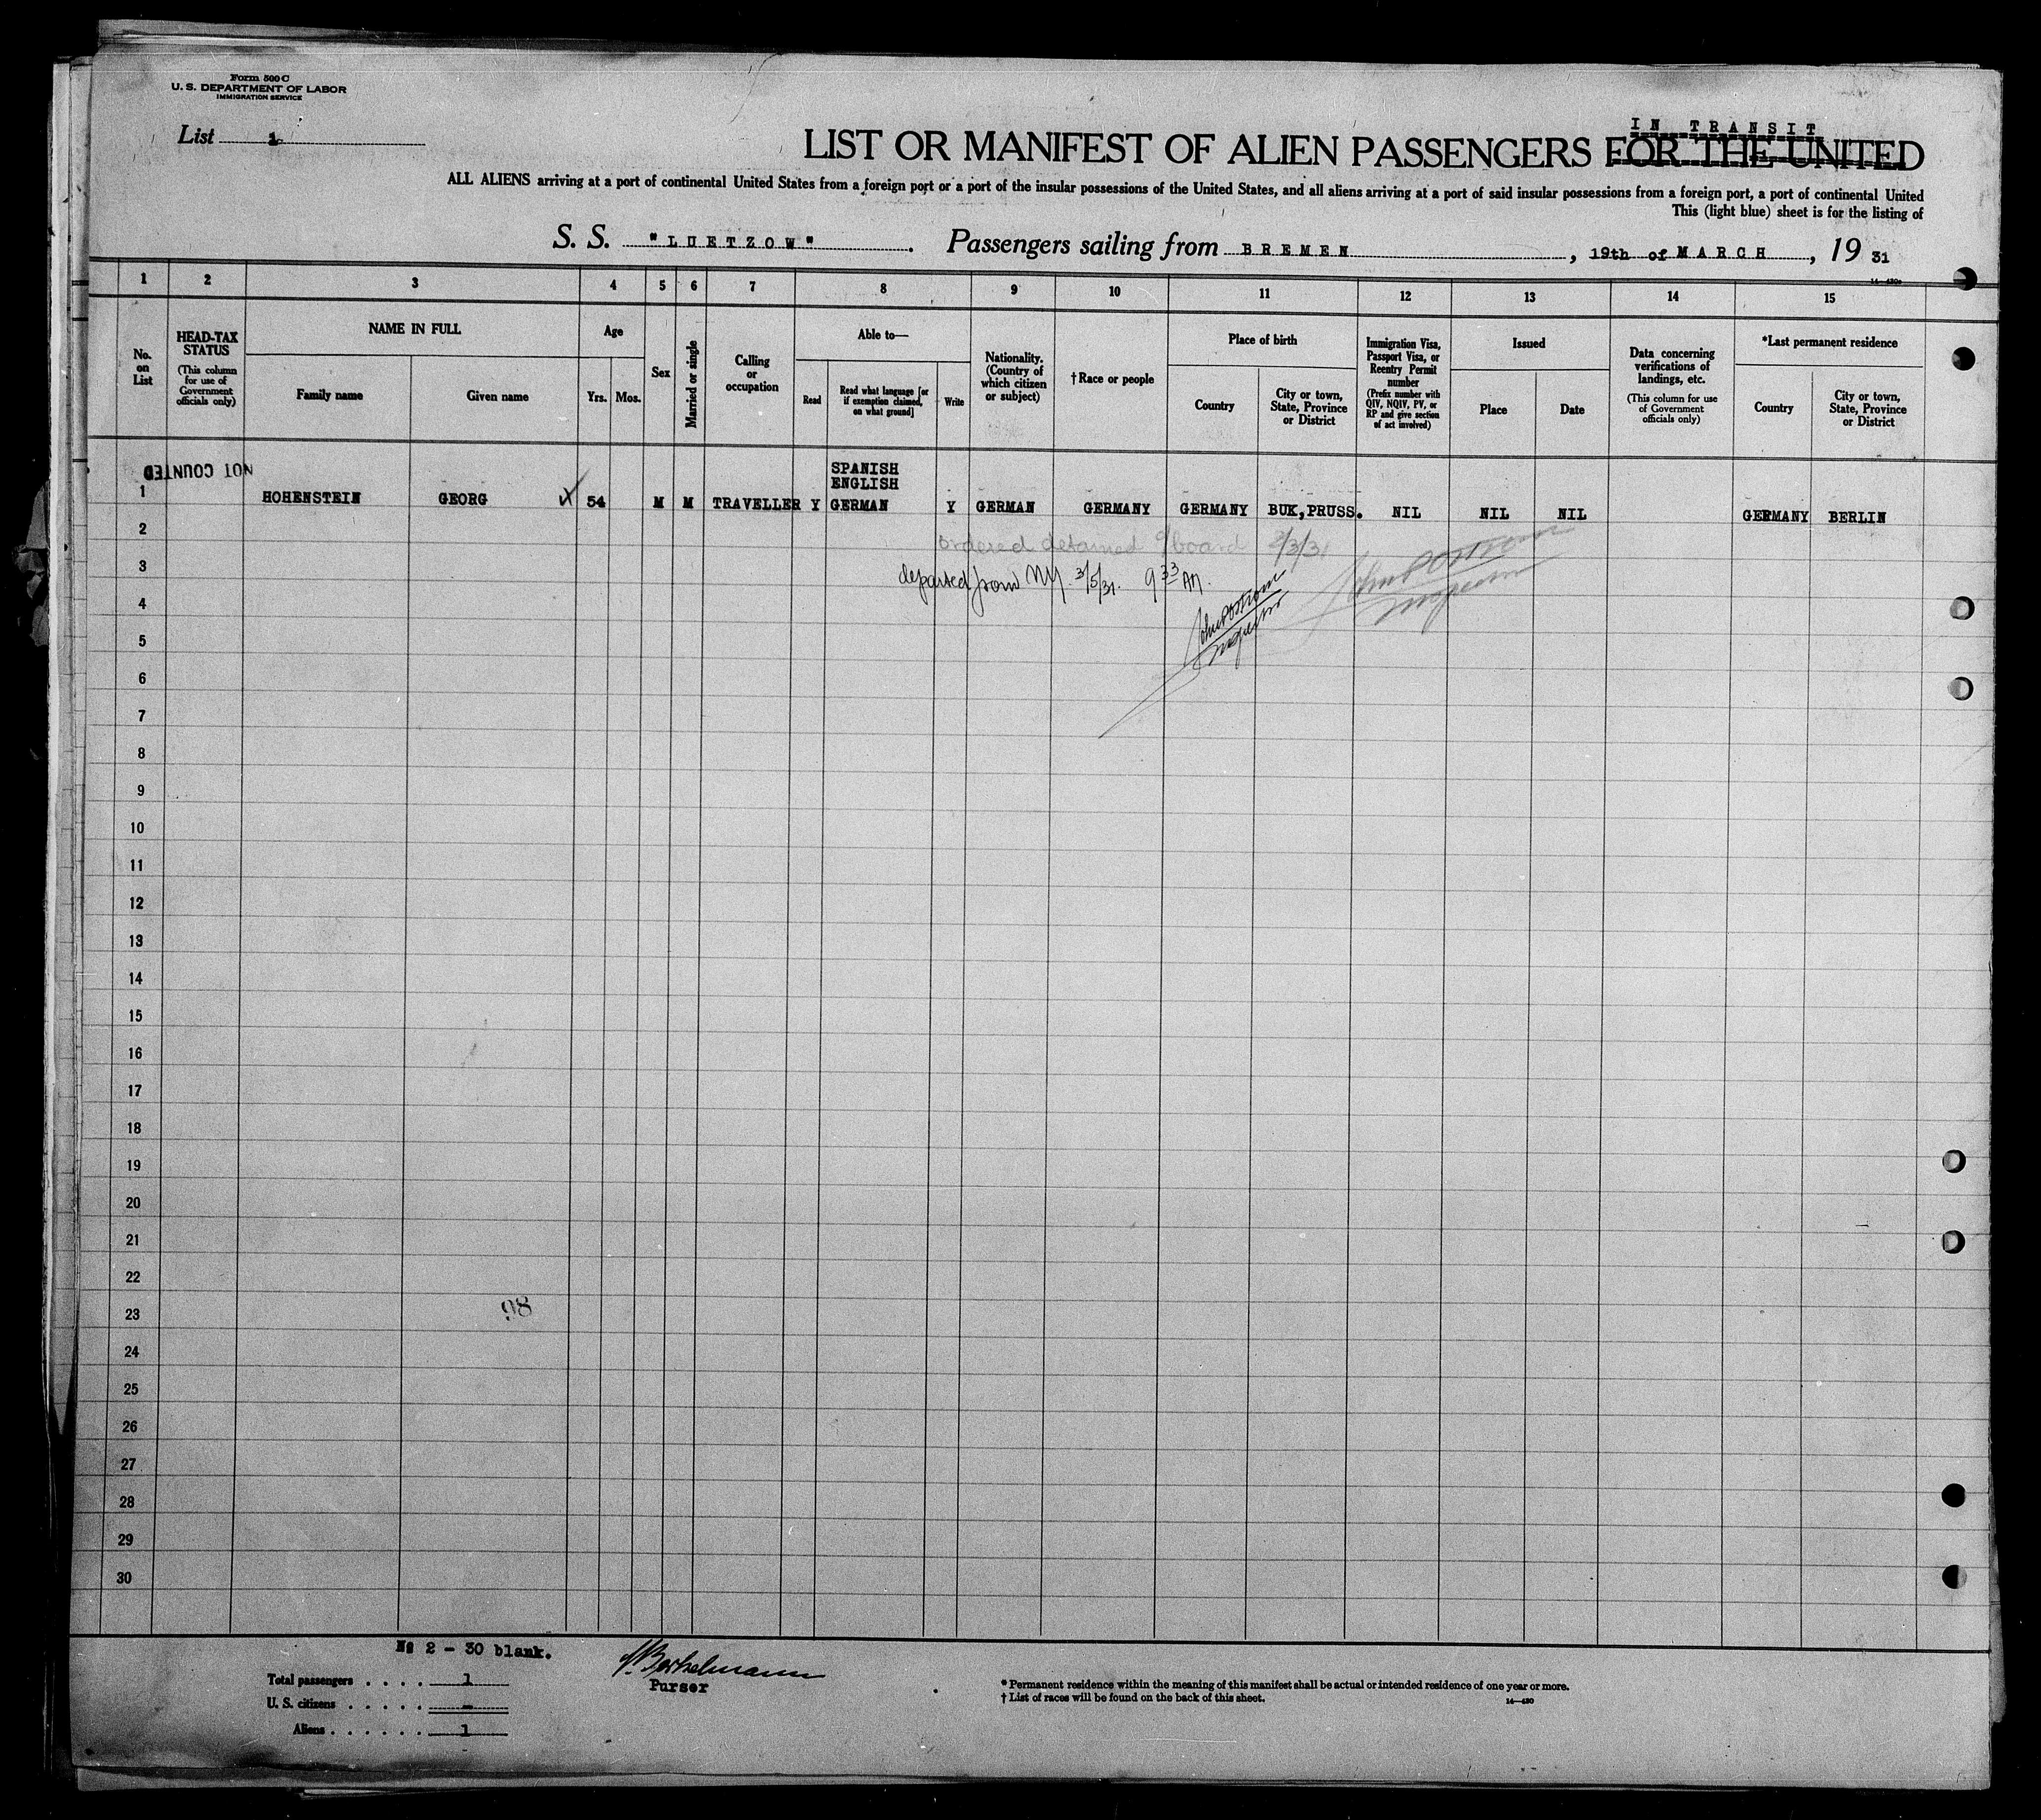 Form 500 C
U. S. DEPARTMENT OF LABOR
IMMIGRATION SERVICE
List 1
IN TRANSIT
LIST OR MANIFEST OF ALIEN PASSENGERS FOR THE UNITED
ALL ALIENS arriving at a port of continental United States from a foreign port or a port of the insular possessions of the United States, and all aliens arriving at a port of said insular possessions from a foreign port, a port of continental United
This (light blue) sheet is for the listing of
S. S. "LUETZOW". Passengers sailing from BREMEN, 19th of MARCH, 19 31
1 2 3 4 5 6 7 8 9 10 11 12 13 14 15
No. on List
HEAD-TAX STATUS
(This column for use of Government officials only)
NAME IN FULL
Family name
Given name
Age
Yrs. Mos.
Sex
Married or single
Calling or occupation
Able to—
Read
Read what language [or if exemption claimed, on what ground]
Write
Nationality. (Country of which citizen or subject)
†Race or people
Place of birth
Country
City or town, State, Province or District
Immigration Visa, Passport Visa, or Reentry Permit number
(Prefix number with QIV, NQIV, PV, or RP and give section of act involved)
Issued
Place
Date
Data concerning verifications of landings, etc.
(This column for use of Government officials only)
*Last permanent residence
Country
City or town, State, Province or District
NOT COUNTED
SPANISH
ENGLISH
1 HOHENSTEIN GEORG 54 M M TRAVELLER Y GERMAN Y GERMAN GERMANY GERMANY BUK, PRUSS. NIL NIL NIL GERMANY BERLIN
2
ordered detained o/board 3/3/31
3
departed from NY. 3/5/31. 9 33 AM.
4
5
6
7
8
9
10
11
12
13
14
15
16
17
18
19
20
21
22
23
98
24
25
26
27
28
29
30
No 2 - 30 blank.
Total passengers . . . . 1
U. S. citizens . . . . . -
Aliens . . . . . . 1
Purser
* Permanent residence within the meaning of this manifest shall be actual or intended residence of one year or more.
† List of races will be found on the back of this sheet.
14—430